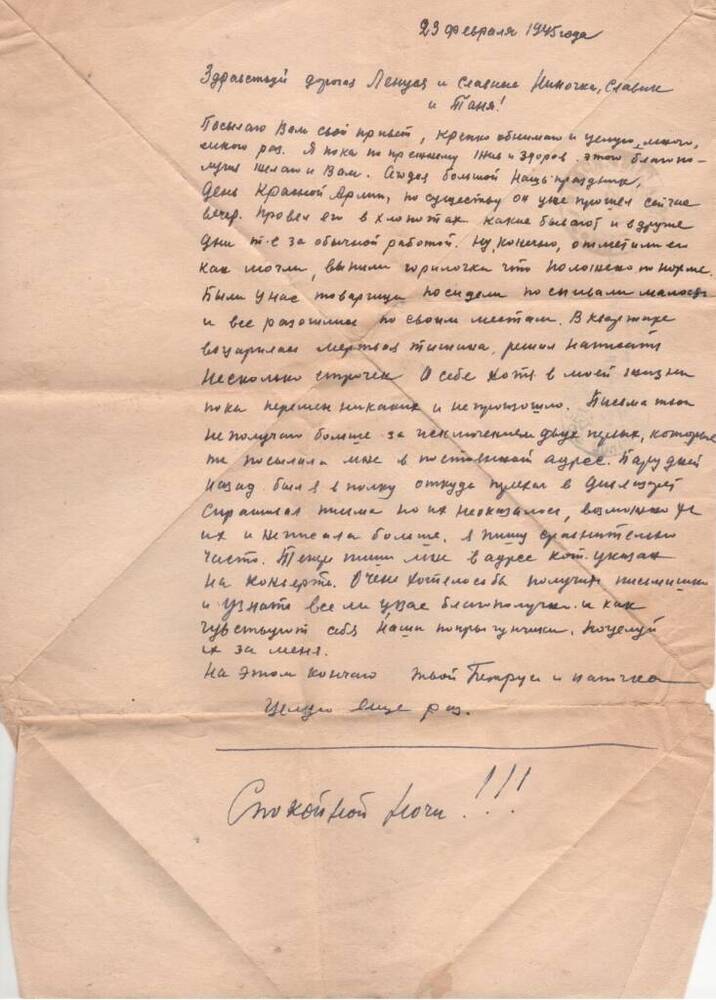 23 февраля 1945 года
Здравствуй дорогая Ленуся и славные Ниночка, Славик
и Таня!
Посылаю Вам свой привет, крепко обнимаю и целую, много,
много раз. Я пока по прежнему жив и здоров. этого благопо-
лучия желаю и Вам. Сегодня большой наш праздник,
День Красной Армии, по существу он уже прошел сейчас
вечер. провел его в хлопотах какие бывают и в другие
дни т-е за обычной работой. Ну, конечно, отметили ею
как могли, выпили горилочки что положено по норме.
Были у нас товарищи посидели поспивали малость
и все разошлись по своим местам. В квартире
воцарилась мертвая тишина. решил написать
несколько строчек о себе хотя в моей жизни
пока перемен никаких и не произошло. Письма твои
не получаю больше за исключением двух первых, которые
ты посылала мне в адрес. Пару дней
назад был я в полку откуда
спрашивал письма но их неоказалось, возможно ты
их и неписала больше. я пишу сравнительно
часто. пиши мне в адрес кот. указан
на конверте. Очень хотелось бы получить письмишко
и узнать все ли у вас благополучно и как
чувствуют себя наши попрыгунчики. поцелуй
их за меня.
На этом кончаю твой Петрусь и папочка
Целую еще раз.
Спокойной ночи!!!